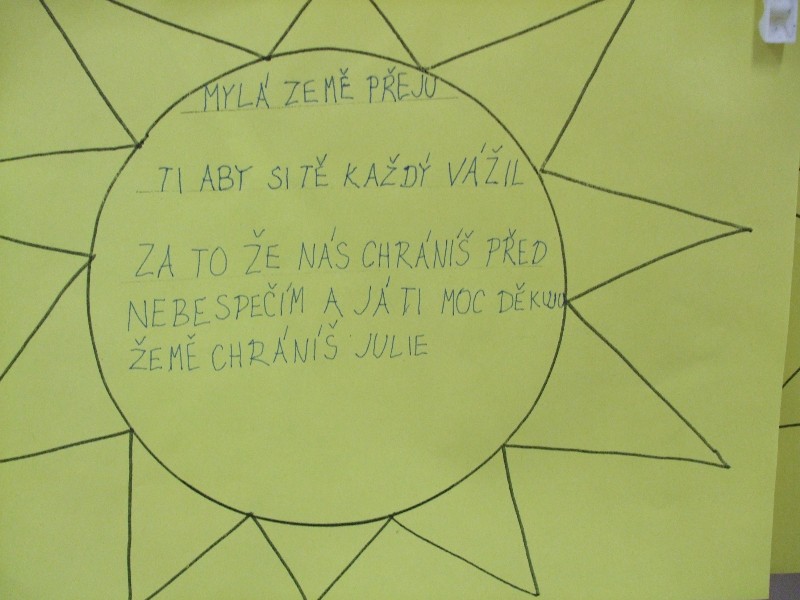 MYLÁ ZEMĚ PŘEJU
TI ABY SI TĚ KAŽDÝ VÁŽIL
ZA TO ŽE NÁS CHRÁNÍŠ PŘED
NEBESPEČÍM A JÁ TI MOC DĚKUJU
ŽEMĚ CHRÁNÍŠ JULIE